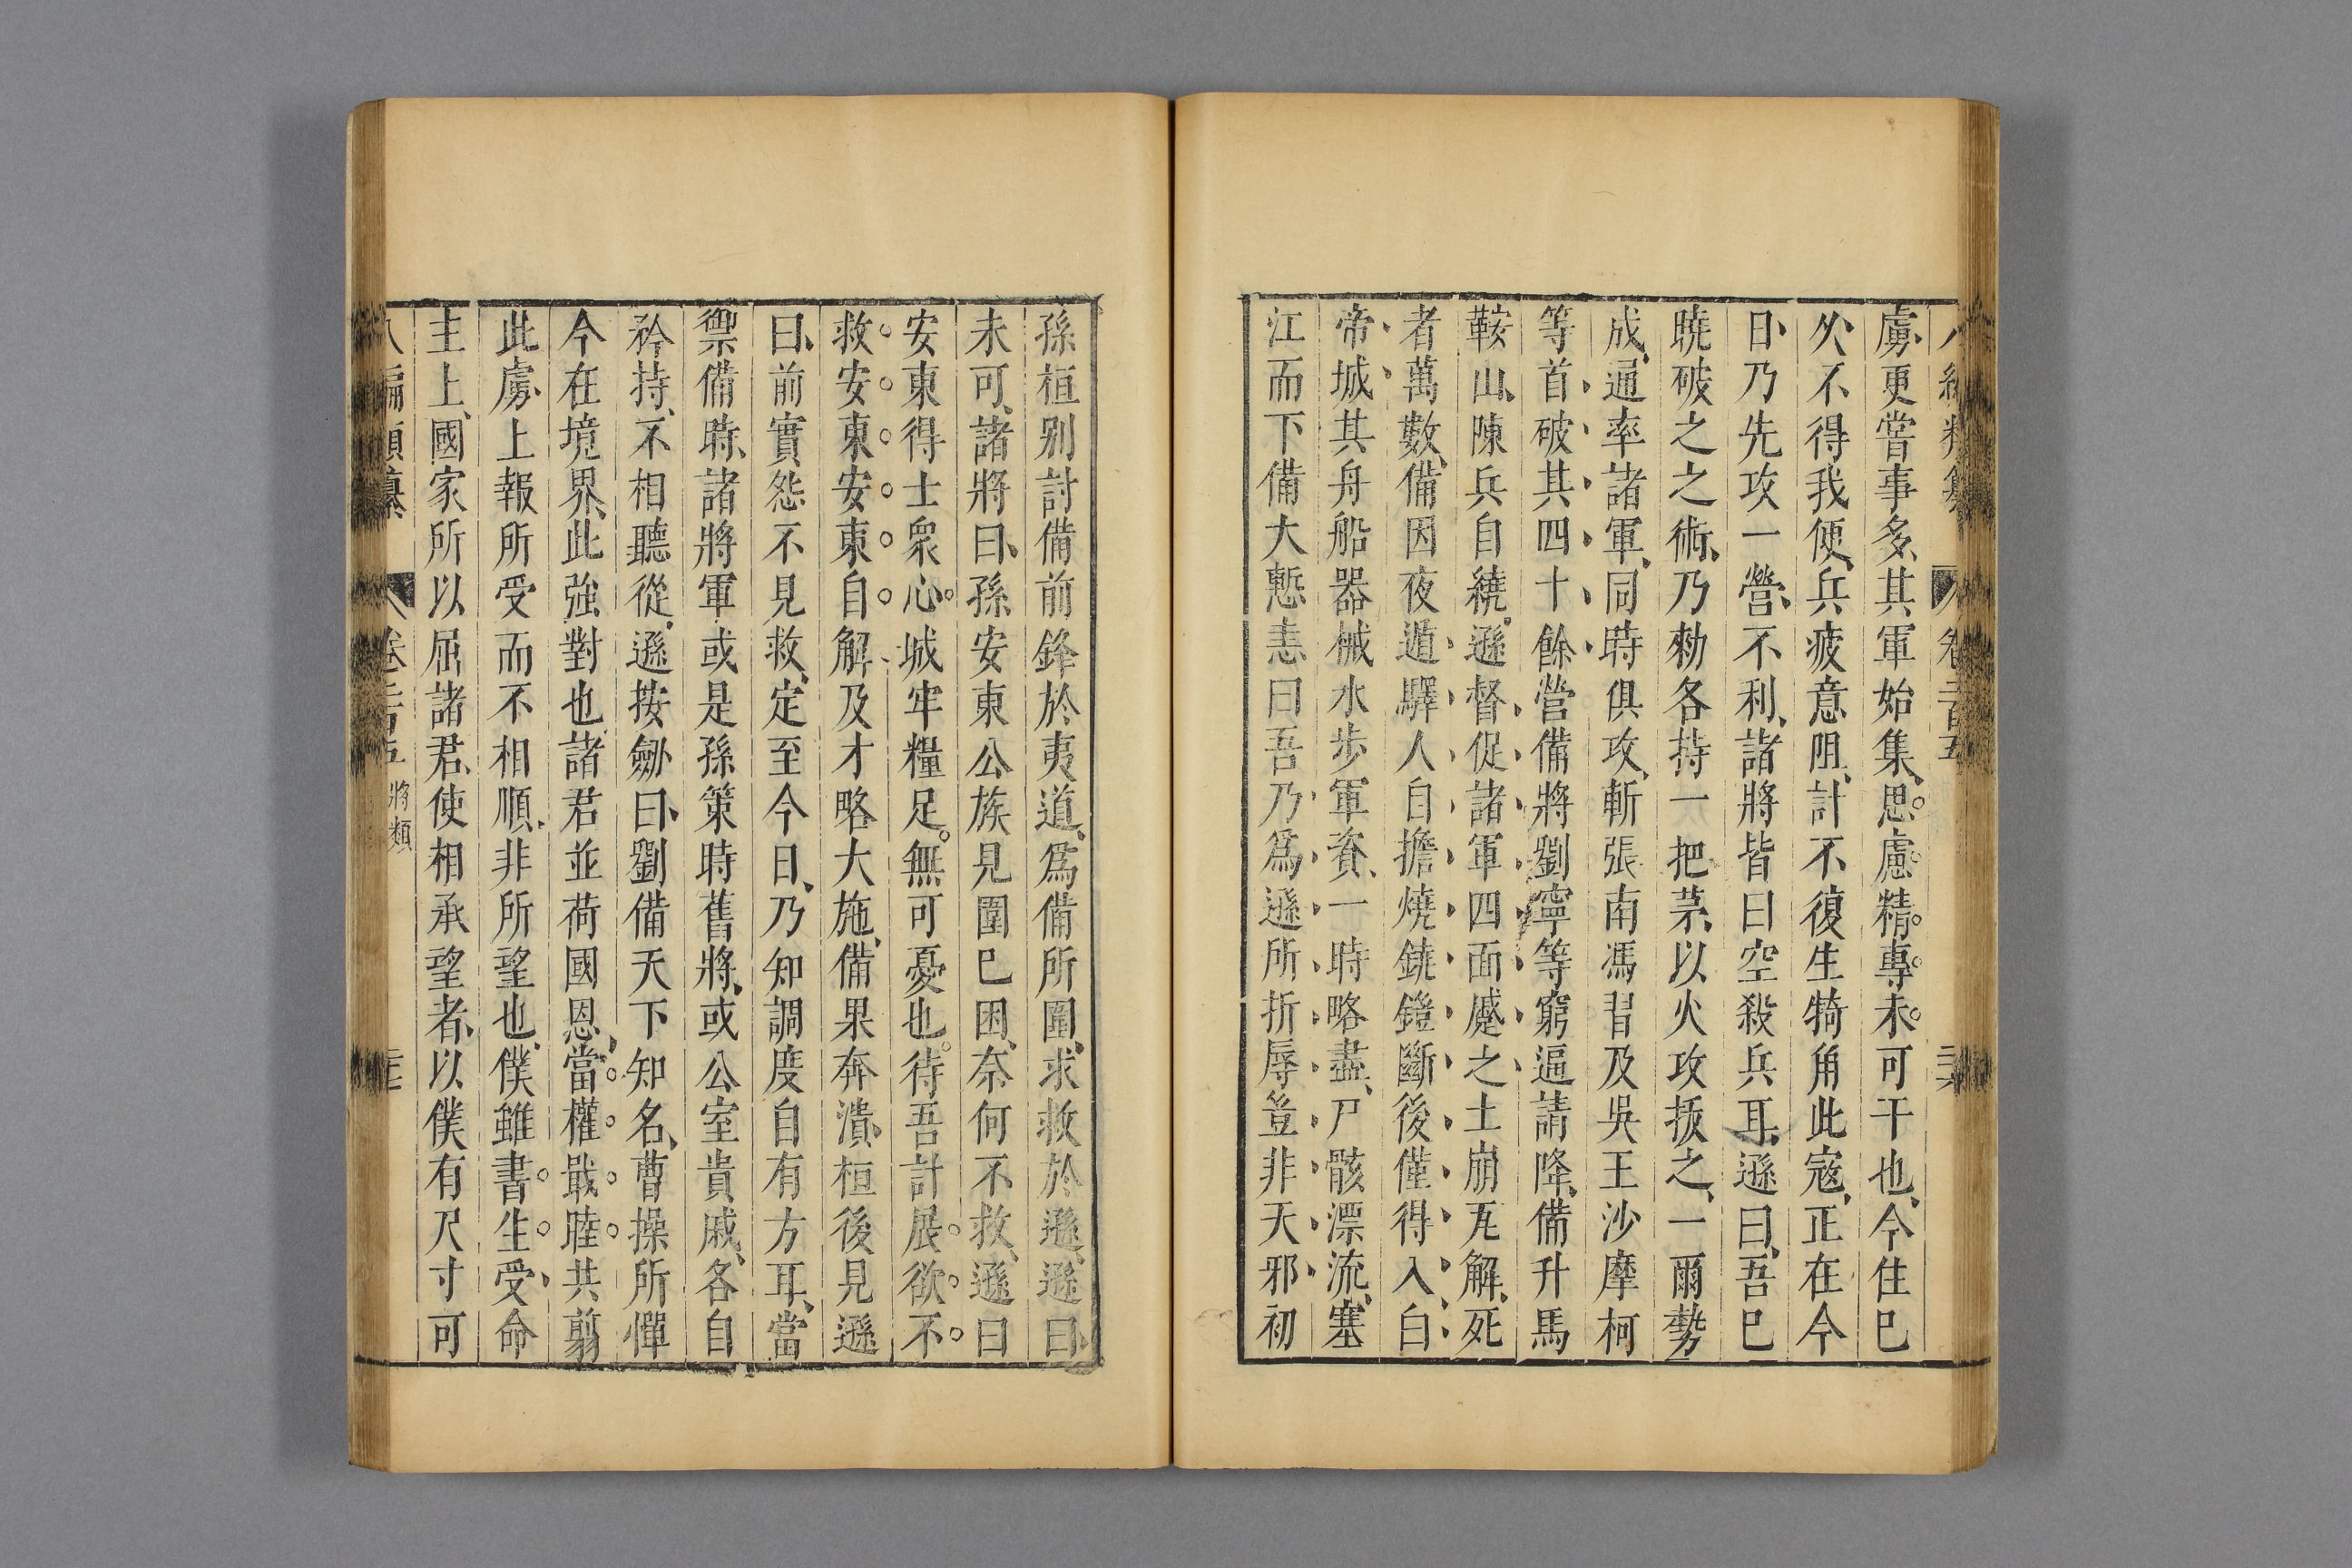 虜更嘗事多、其軍始集、思慮精專未可干也、今住已
久、不得我便、兵疲意阻、計不復生犄角此寇、正在今
日、乃先攻一營、不利、諸將皆曰空殺兵耳、遜曰、吾已
曉破之之術、乃勑各持一把茅、以火攻拔之、一爾勢
成、通率諸軍、同時俱攻、斬張南馮習及吳王沙摩柯
等首、破其四十餘營、備將劉寧等窮逼請降、備升馬
鞍山、陳兵自繞、遜督促諸軍四面蹙之、土崩瓦解、死
者萬數、備因夜遁、驛人自擔燒鐃鎧斷後、僅得入白
帝城、其舟船器械水步軍資、一時略盡、尸骸漂流、塞
江而下、備大慙恚曰、吾乃爲遜所折辱、豈非天邪、初
孫桓別討備前鋒於夷道、爲備所圍、求救於遜、遜曰
未可、諸將曰、孫安東公族見圍已困、奈何不救、遜曰
安東得士衆心、城牢糧足、無可憂也、待吾計展、欲不
救安東、安東自解、及才略大施、備果奔潰、桓後見遜
曰、前實怨不見救、定至今日、乃知調度自有方耳、當
禦備時、諸將軍或是孫策時舊將、或公室貴戚、各自
矜持、不相聽從、遜按劒曰、劉備天下知名、曹操所憚
今在境界、此強對也、諸君並荷國恩、當權戢睦共翦
此虜、上報所受、而不相順、非所望也、僕雖書生、受命
主上、國家所以屈諸君、使相承望者、以僕有尺寸可
八編類纂 卷二百五 將類